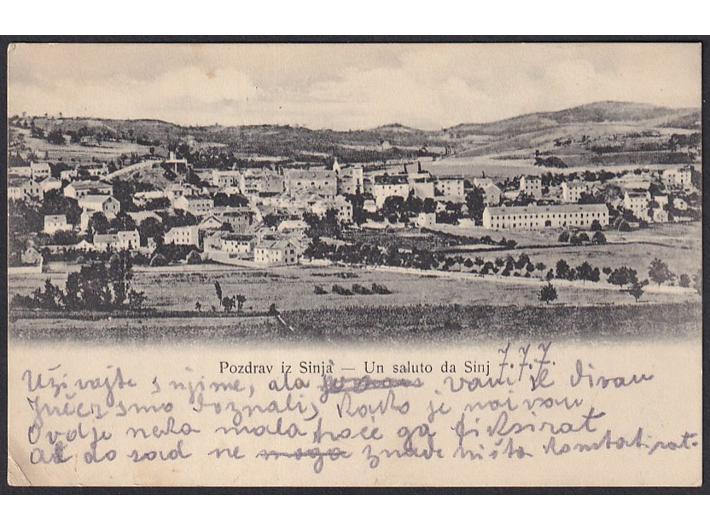 Pozdrav iz Sinja — Un saluto da Sinj 7.7.7.
Uživajte s njime, ala vam je divan
Jučer smo doznali, kako je naivan
Ovdje neka mala hoće ga fiksirat
al do sad ne može znade ništa konstatirat.